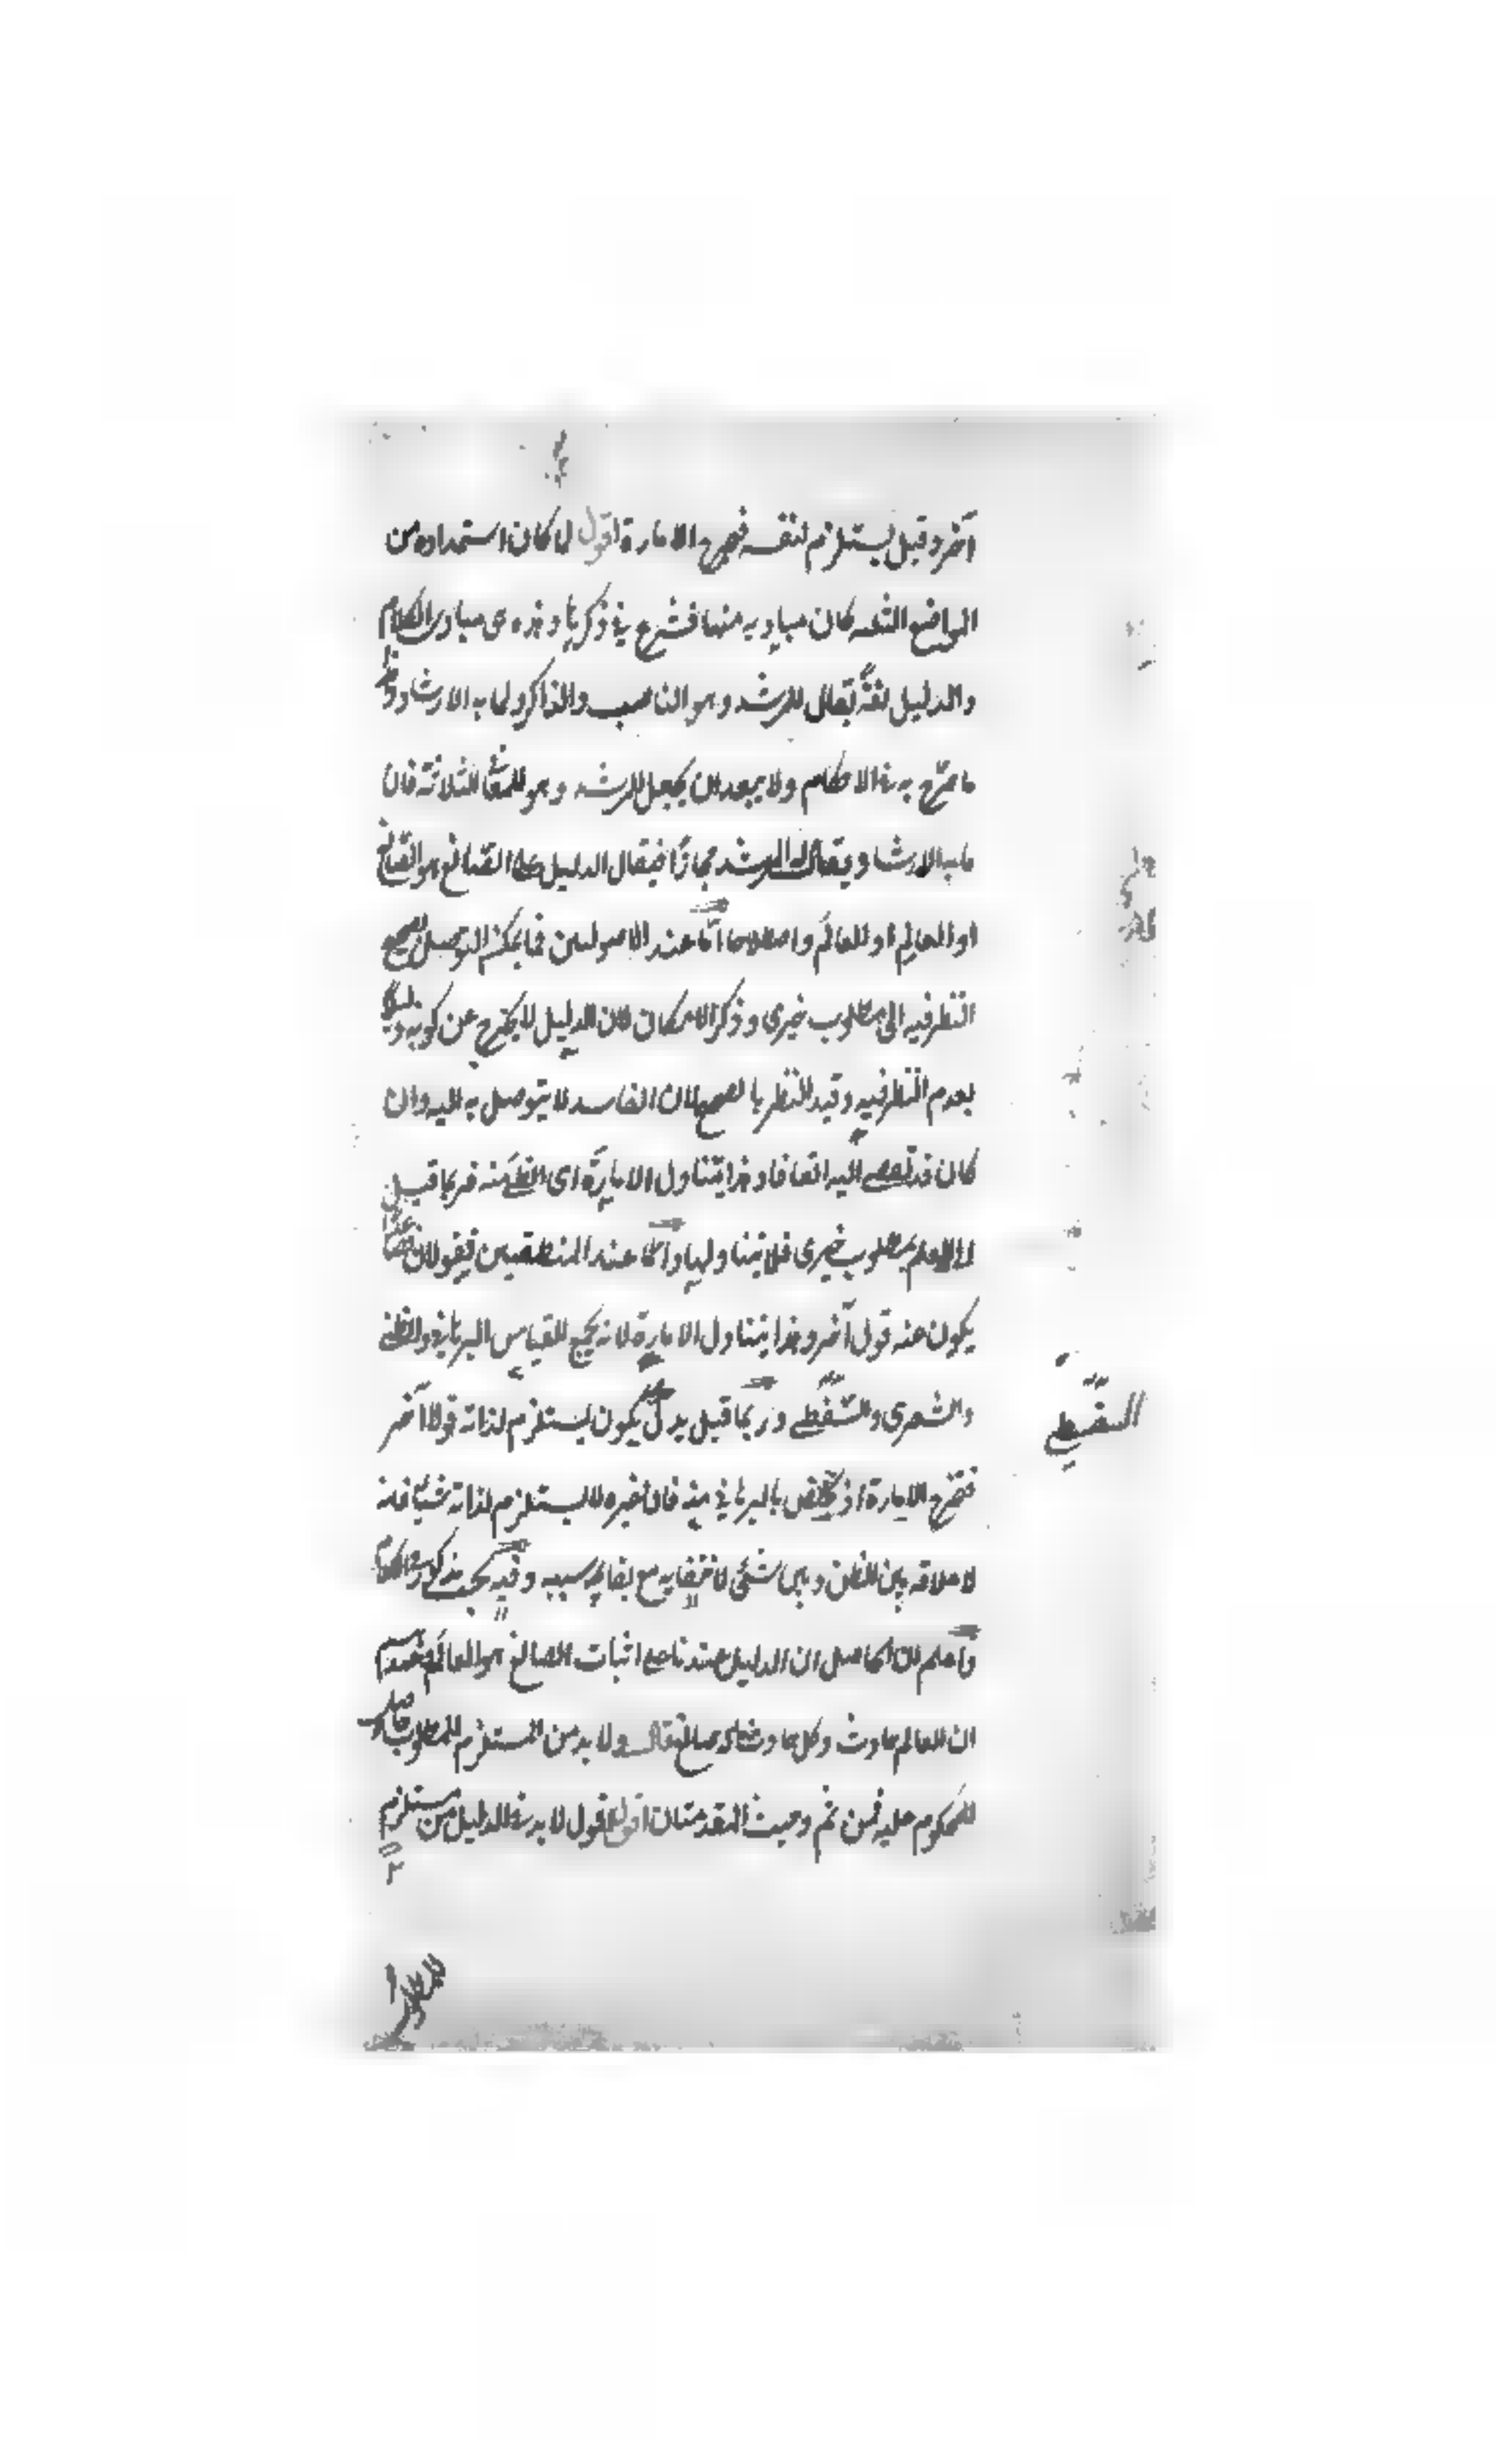 آخر وقيل يستلزم لنفسه فيخرج الامارة اقول لما كان استمداده من
المواضع الثلثة كان مباديه منها فشرع في ذكرها وهذه هي مبادى الكلام
والدليل لغةً يقال للمرشد وهو الناصب والذاكر ولما به الارشاد
ما صرّح به في الاحكام ولا يبعد ان يجعل للمرشد وهو للمعانى الثلاثة فان
ما به الارشاد يقال له المرشد مجازًا فيقال الدليل على الصانع هو الصانع
او العالِم او العالَم واصطلاحا امّا عند الاصوليين فما يمكن التوصل بصحيح
النظر فيه الى مطلوب خبرى وذكر الامكان لان الدليل لا يخرج عن كونه دليلًا
بعدم النظر فيه وقيد النظر بالصحيح لان الفاسد لا يتوصل به اليه وان
كان قد يفضى اليه اتفاقا وهذا يتناول الامارة اى الظنى منه فربما قيل
الى العلم بمطلوب خبرى فلا يتناولها وامّا عند المنطقيين فقولان فصاعدًا
يكون عنه قول آخر وهذا يتناول الامارة لانه يجمع القياس البرهانى والظنى
والشعرى والسفسطى وربّما قيل بدل يكون يستلزم لذاته قولا آخر
فتخرج الامارة اذ يختص بالبرهانى منه فان غيره لا يستلزم لذاته شيئا فانه
لا علاقة بين الظن وبين شئ لانتفائه مع بقاء سببه وفيه بحث مذكور فى الكلام
واعلم ان الحاصل ان الدليل عندنا على اثبات الصانع هو العالم وعندهم
ان العالم حادث وكل حادث له صانع قال ولا بد من المستلزم للمطلوب حاصل
للمحكوم عليه فمن ثم وجبت المقدمتان اقول لا بد في الدليل من مستلزم
السفسطى